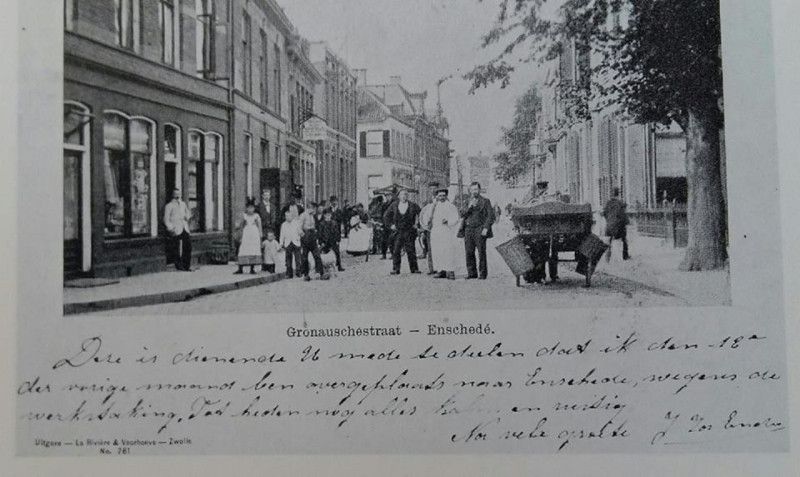 Gronauschestraat – Enschedé.
Deze is dienende U mede te deelen dat ik den 12e
der vorige maand ben overgeplaats naar Enschede, wegens de
werkstaking. Tot heden nog alles kalm en rustig
Na vele groete J
Uitgave — La Rivière & Voorhoeve — Zwolle
No. 781